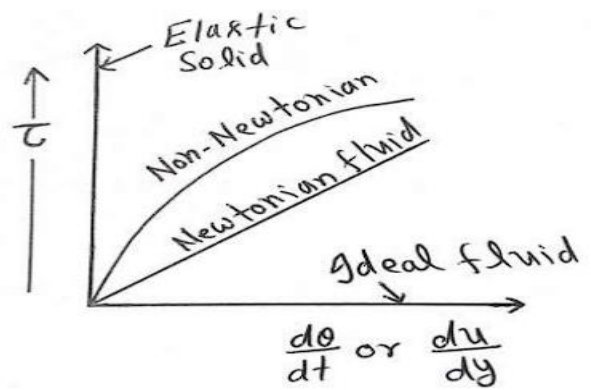 Elastic
Solid
τ
Non-Newtonian
Newtonian fluid
Ideal fluid
dθ/dt or du/dy